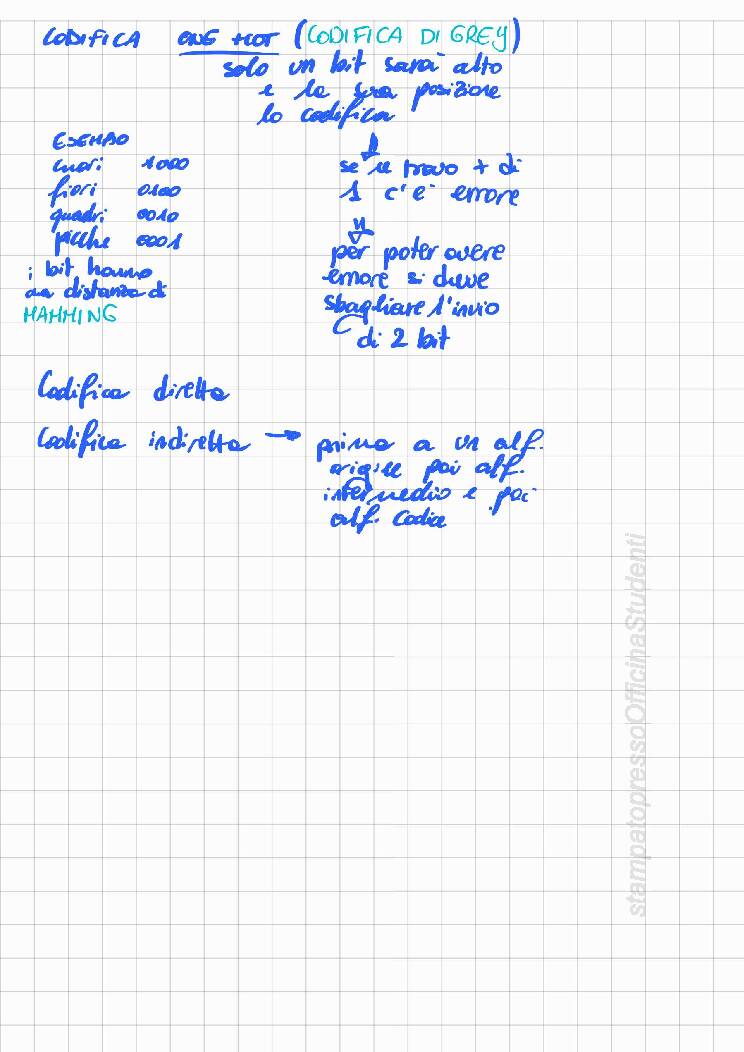 CODIFICA ONE HOT (CODIFICA DI GREY)
solo un bit sarà alto
e la sua posizione
lo codifica
ESEMPIO
cuori 1000
fiori 0100
quadri 0010
picche 0001
i bit hanno
una distanza di
HAMMING
se ne trovo + di
1 c'è errore
per poter avere
errore si deve
sbagliare l'invio
di 2 bit
Codifica diretta
Codifica indiretta → prima a un alf.
origine poi alf.
intermedio e poi
alf. codice
stampatopressoOfficinaStudenti